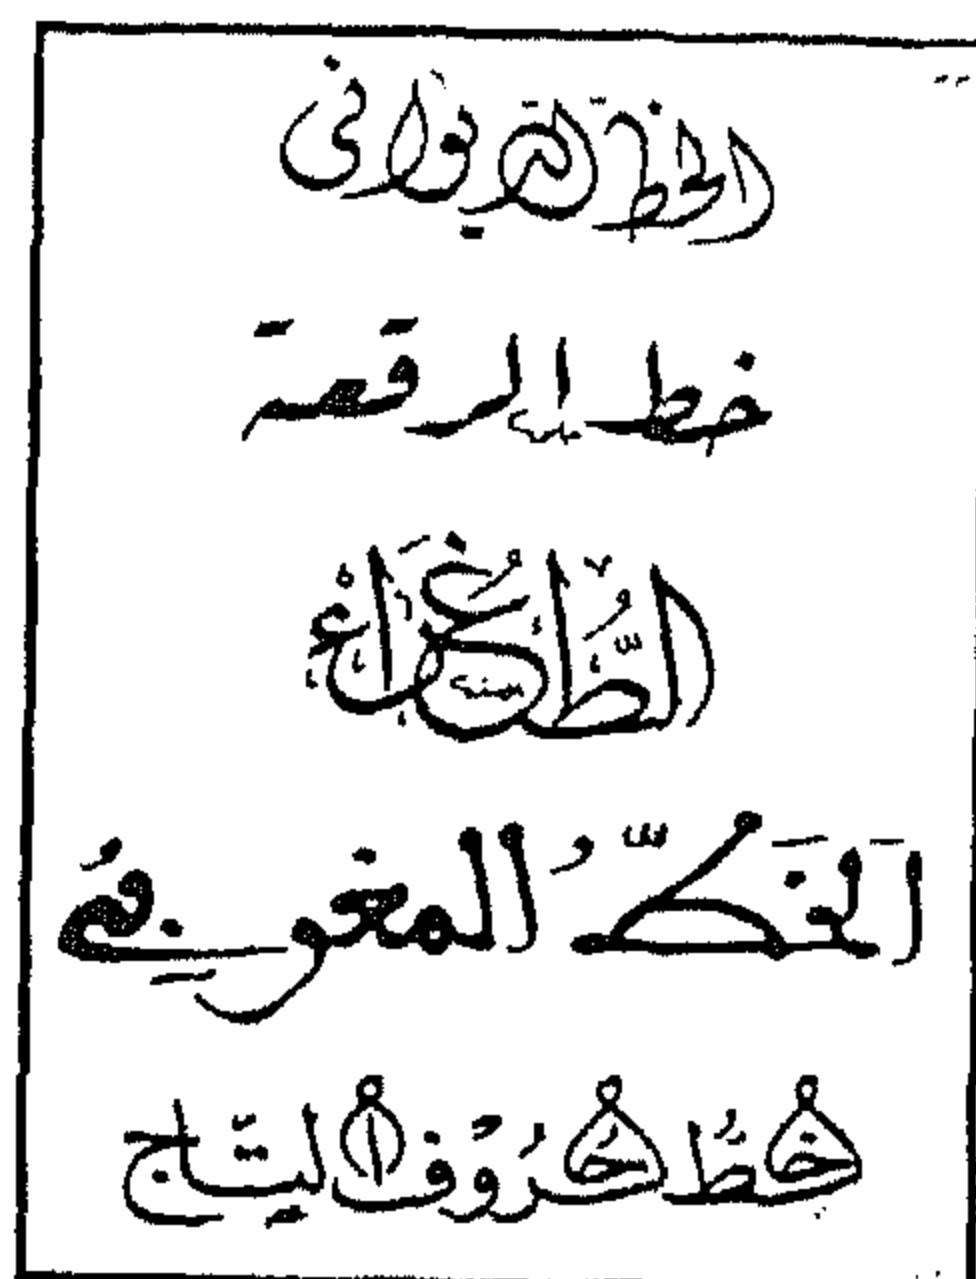 الخط الديواني
خط الرقعة
الطُّغُرَاءُ
اَلخَطُّ المغربيُ
خطُ حُرُوف التّاج